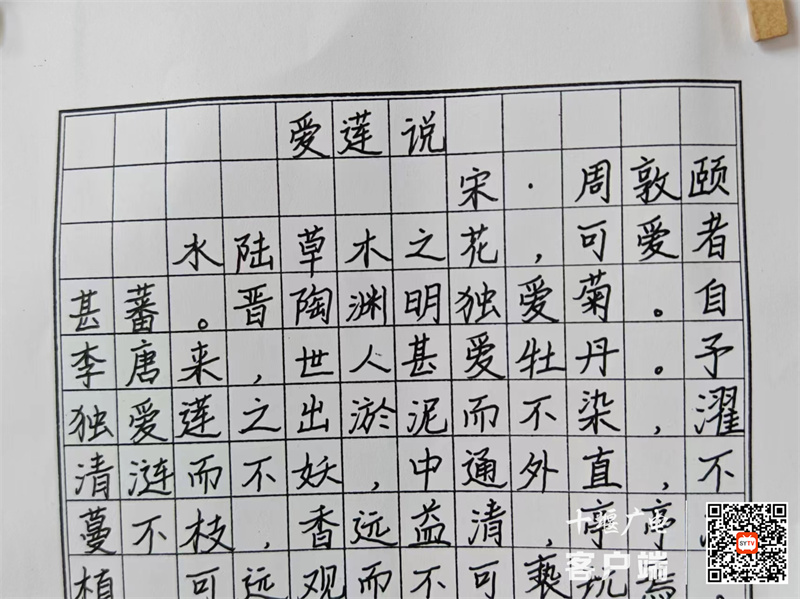 爱莲说
宋·周敦颐
水陆草木之花，可爱者
甚蕃。晋陶渊明独爱菊。自
李唐来，世人甚爱牡丹。予
独爱莲之出淤泥而不染，濯
清涟而不妖，中通外直，不
蔓不枝，香远益清，亭亭
植，可远观而不可亵玩焉。
十堰广电
客户端
SYTV